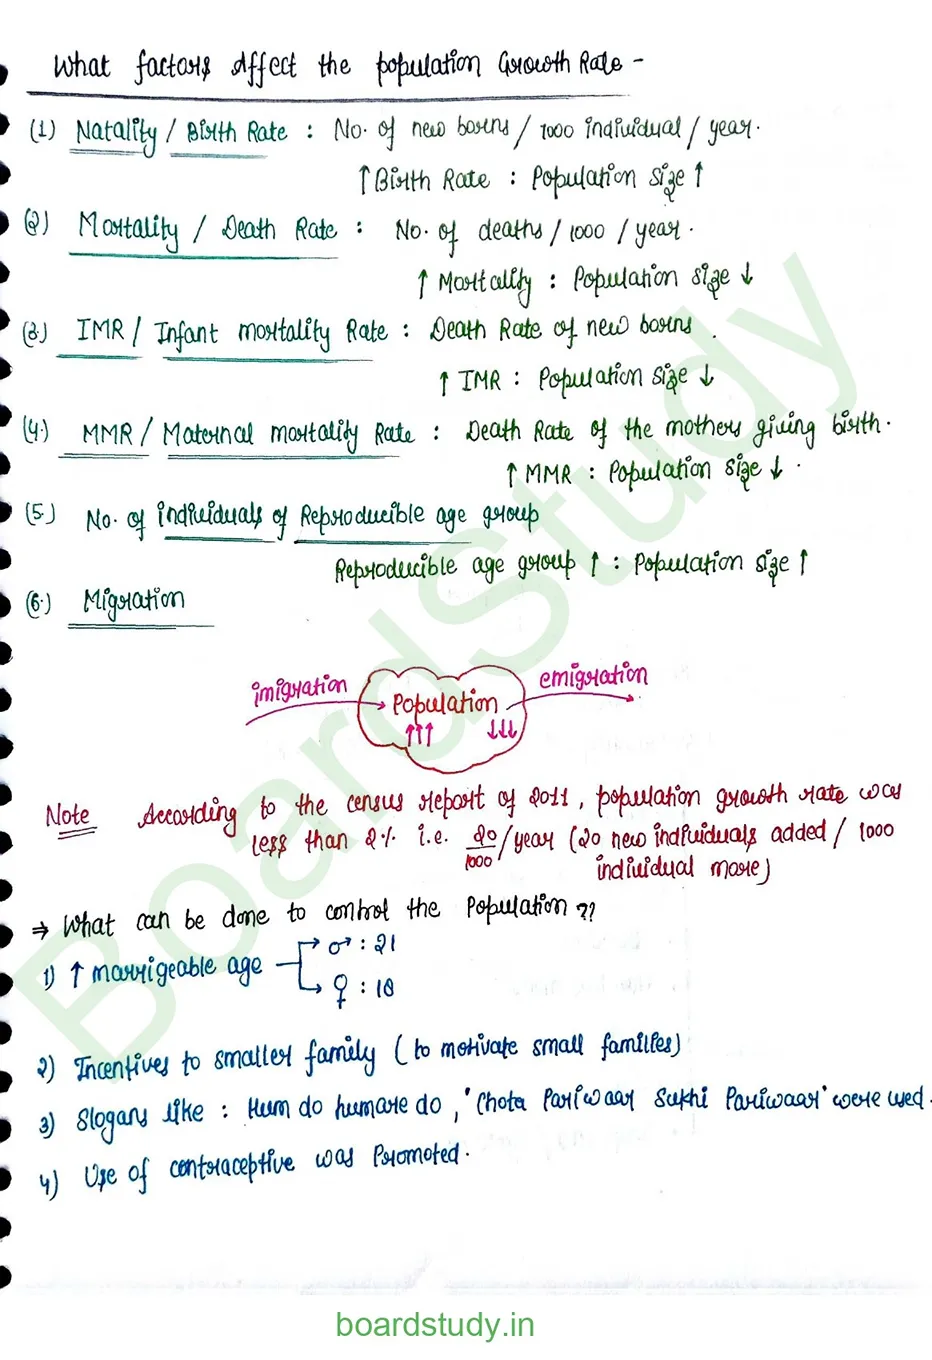 What factors Affect the population Growth Rate -
(1) Natality / Birth Rate : No. of new borns / 1000 individual / year.
↑ Birth Rate : Population size ↑
(2) Mortality / Death Rate : No. of deaths / 1000 / year.
↑ Mortality : Population size ↓
(3) IMR / Infant mortality Rate : Death Rate of new borns.
↑ IMR : Population size ↓
(4.) MMR / Maternal mortality Rate : Death Rate of the mothers giving birth.
↑ MMR : Population size ↓.
(5.) No. of individuals of Reproducible age group
Reproducible age group ↑ : Population size ↑
(6.) Migration
imigration
Population
↑↑↑ ↓↓↓
emigration
Note According to the census report of 2011, population growth rate was
less than 2% i.e. 20/1000 / year (20 new individuals added / 1000
individual more)
⇒ What can be done to control the Population ??
1) ↑ marrigeable age
♂ : 21
♀ : 18
2) Incentives to smaller family (to motivate small families)
3) Slogans like : Hum do humare do, 'Chota Pariwaar Sukhi Pariwaar' were used.
4) Use of contraceptive was Promoted.
BoardStudy
boardstudy.in